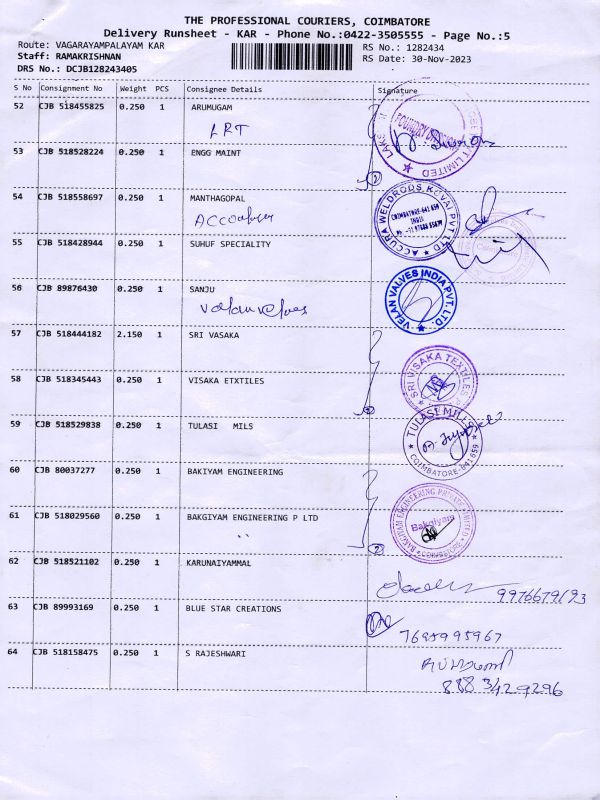 THE PROFESSIONAL COURIERS, COIMBATORE
Delivery Runsheet - KAR - Phone No.:0422-3505555 - Page No.:5
Route: VAGARAYAMPALAYAM KAR
RS No.: 1282434
Staff: RAMAKRISHNAN
RS Date: 30-Nov-2023
DRS No.: DCJB128243405
S No Consignment No Weight PCS Consignee Details Signature
52 CJB 518455825 0.250 1 ARUMUGAM
LRT
FOUNDRY DIVISION
LIMITED
53 CJB 518528224 0.250 1 ENGG MAINT
54 CJB 518558697 0.250 1 MANTHAGOPAL
ACCURA WELDRODS KOVAI PVT. LTD
COIMBATORE-641 659
INDIA
55 CJB 518428944 0.250 1 SUHUF SPECIALITY
56 CJB 89876430 0.250 1 SANJU
Velan Valves
VELAN VALVES INDIA PVT. LTD.
57 CJB 518444182 2.150 1 SRI VASAKA
58 CJB 518345443 0.250 1 VISAKA ETXTILES
SRI VISAKA TEXTILES
59 CJB 518529838 0.250 1 TULASI MILS
TULASI MILLS
COIMBATORE-641 659
60 CJB 80037277 0.250 1 BAKIYAM ENGINEERING
61 CJB 518029560 0.250 1 BAKGIYAM ENGINEERING P LTD
BAKGIYAM ENGINEERING PRIVATE LIMITED
Bakgiyam
COIMBATORE
62 CJB 518521102 0.250 1 KARUNAIYAMMAL
63 CJB 89993169 0.250 1 BLUE STAR CREATIONS
7695995967
64 CJB 518158475 0.250 1 S RAJESHWARI
888 3429296